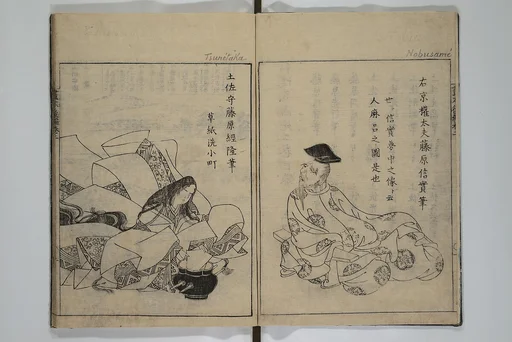 Nobusané
右京権太夫藤原信實筆
也、信實夢中之像ト云
人麻呂之圖是也
Tsunétaka
土佐守藤原經隆筆
草紙洗小町